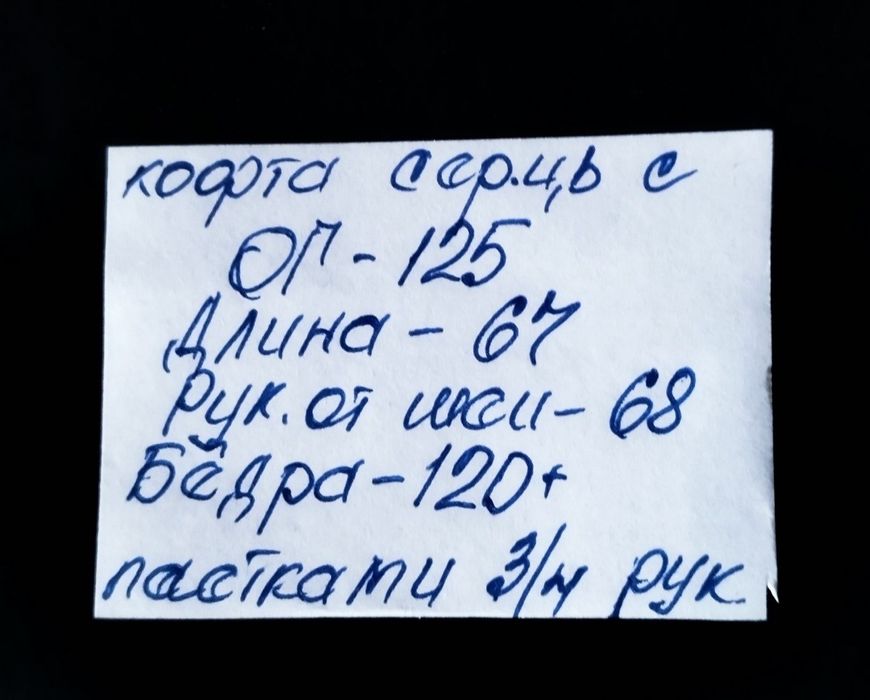 кофта сер.ц,ь с
ОГ - 125
Длина - 67
Рук. от шеи - 68
Бёдра - 120+
ластками 3/ч рук.